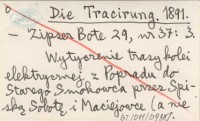 Die Tracirung. 1891.
- Zipser Bote 29, nr 37: 3.
Wytyczenie trasy kolei
elektrycznej z Popradu do
Starego Smokowca przez Spi-
ską Sobotę i Maciejowce (a nie